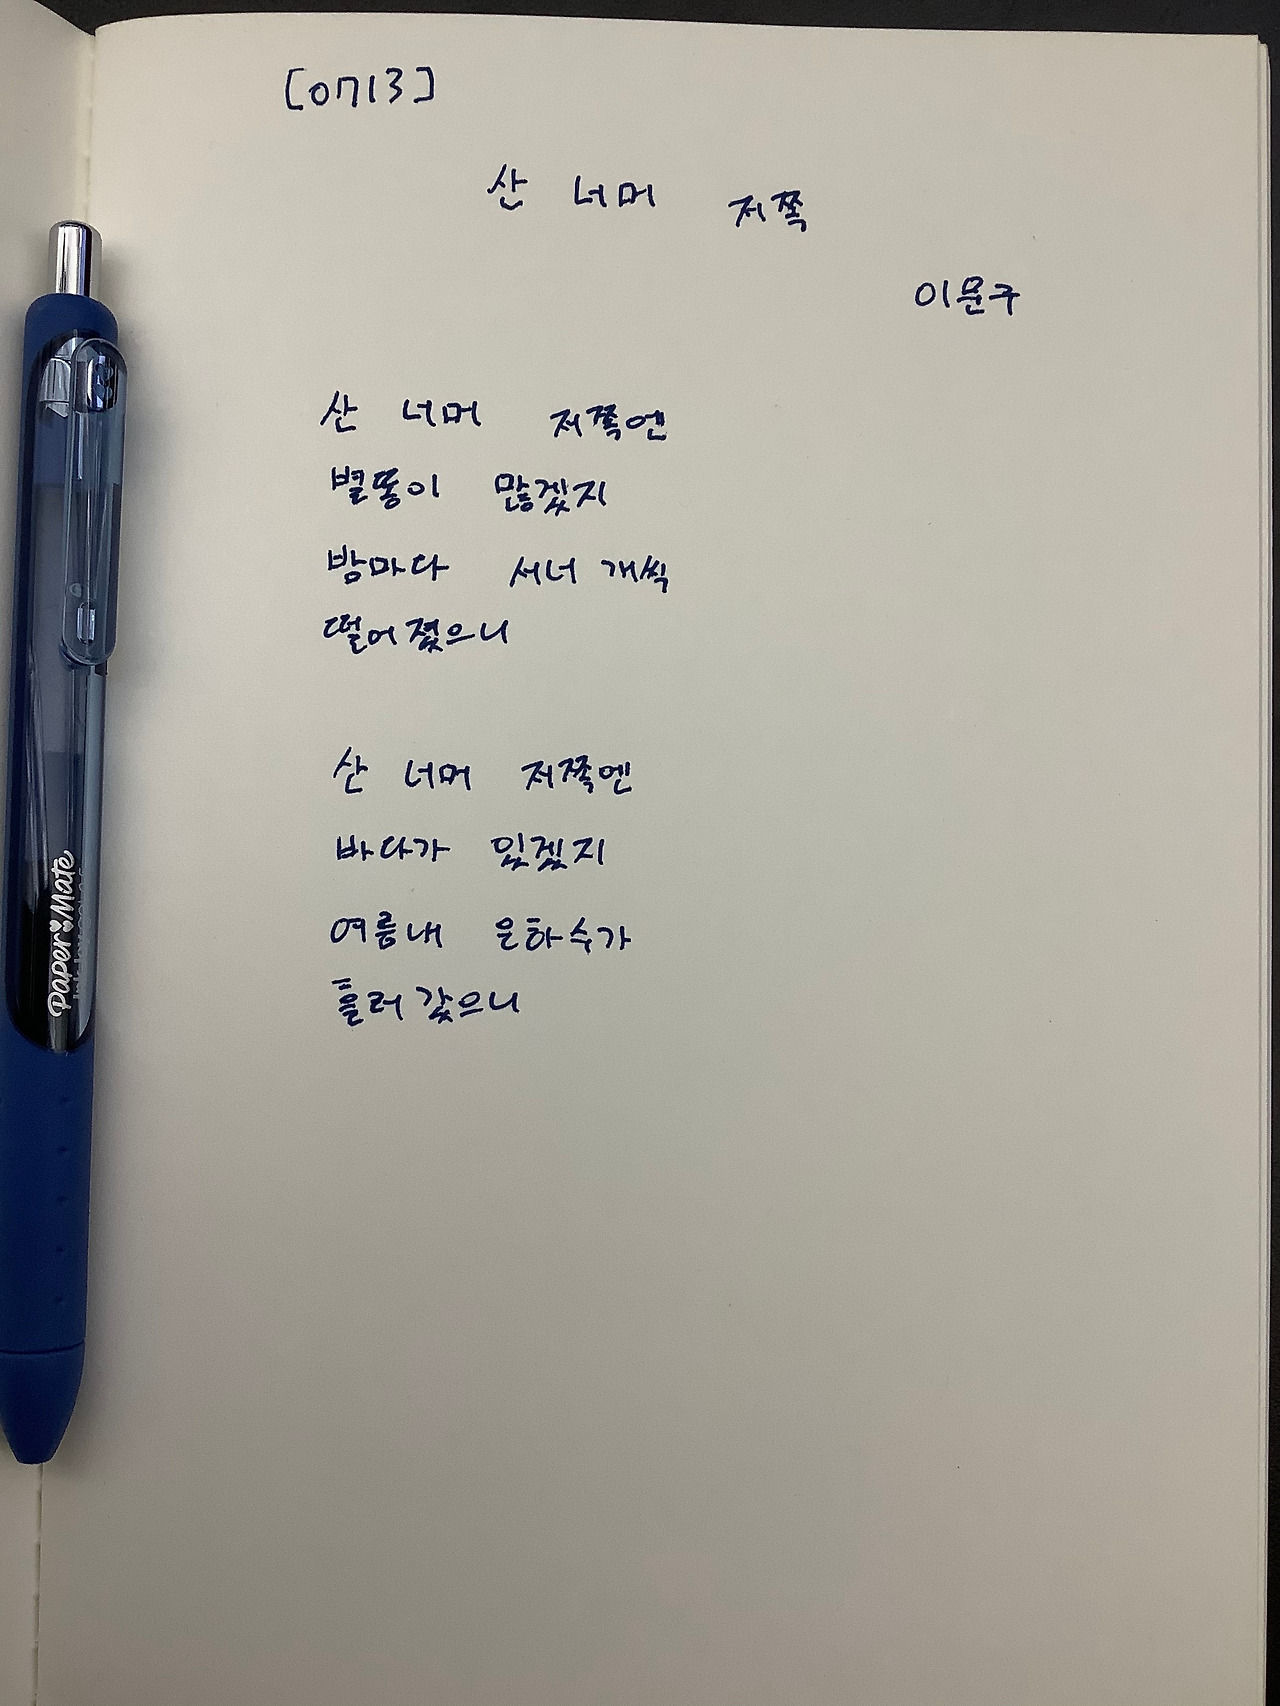 [0713]
산 너머 저쪽
이문구
산 너머 저쪽엔
별똥이 많겠지
밤마다 서너 개씩
떨어졌으니
산 너머 저쪽엔
바다가 있겠지
여름내 은하수가
흘러갔으니
Paper Mate